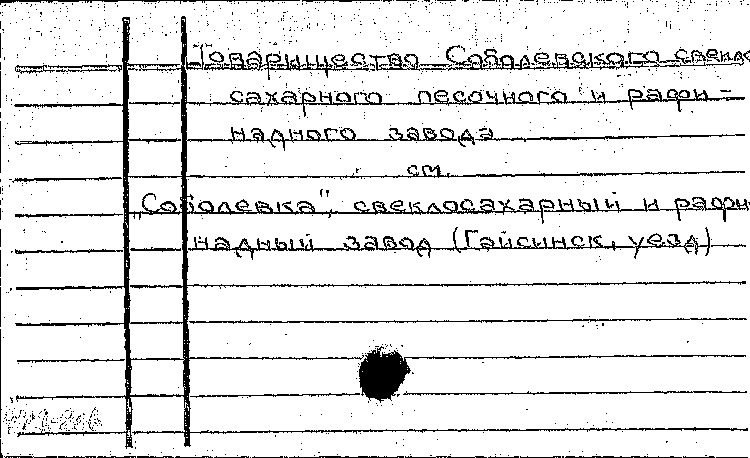 Товарищество Соболевского свекло
сахарного песочного и рафи-
надного завода
см.
„Соболевка", свеклосахарный и рафи-
надный завод (Гайсинск, уезд)